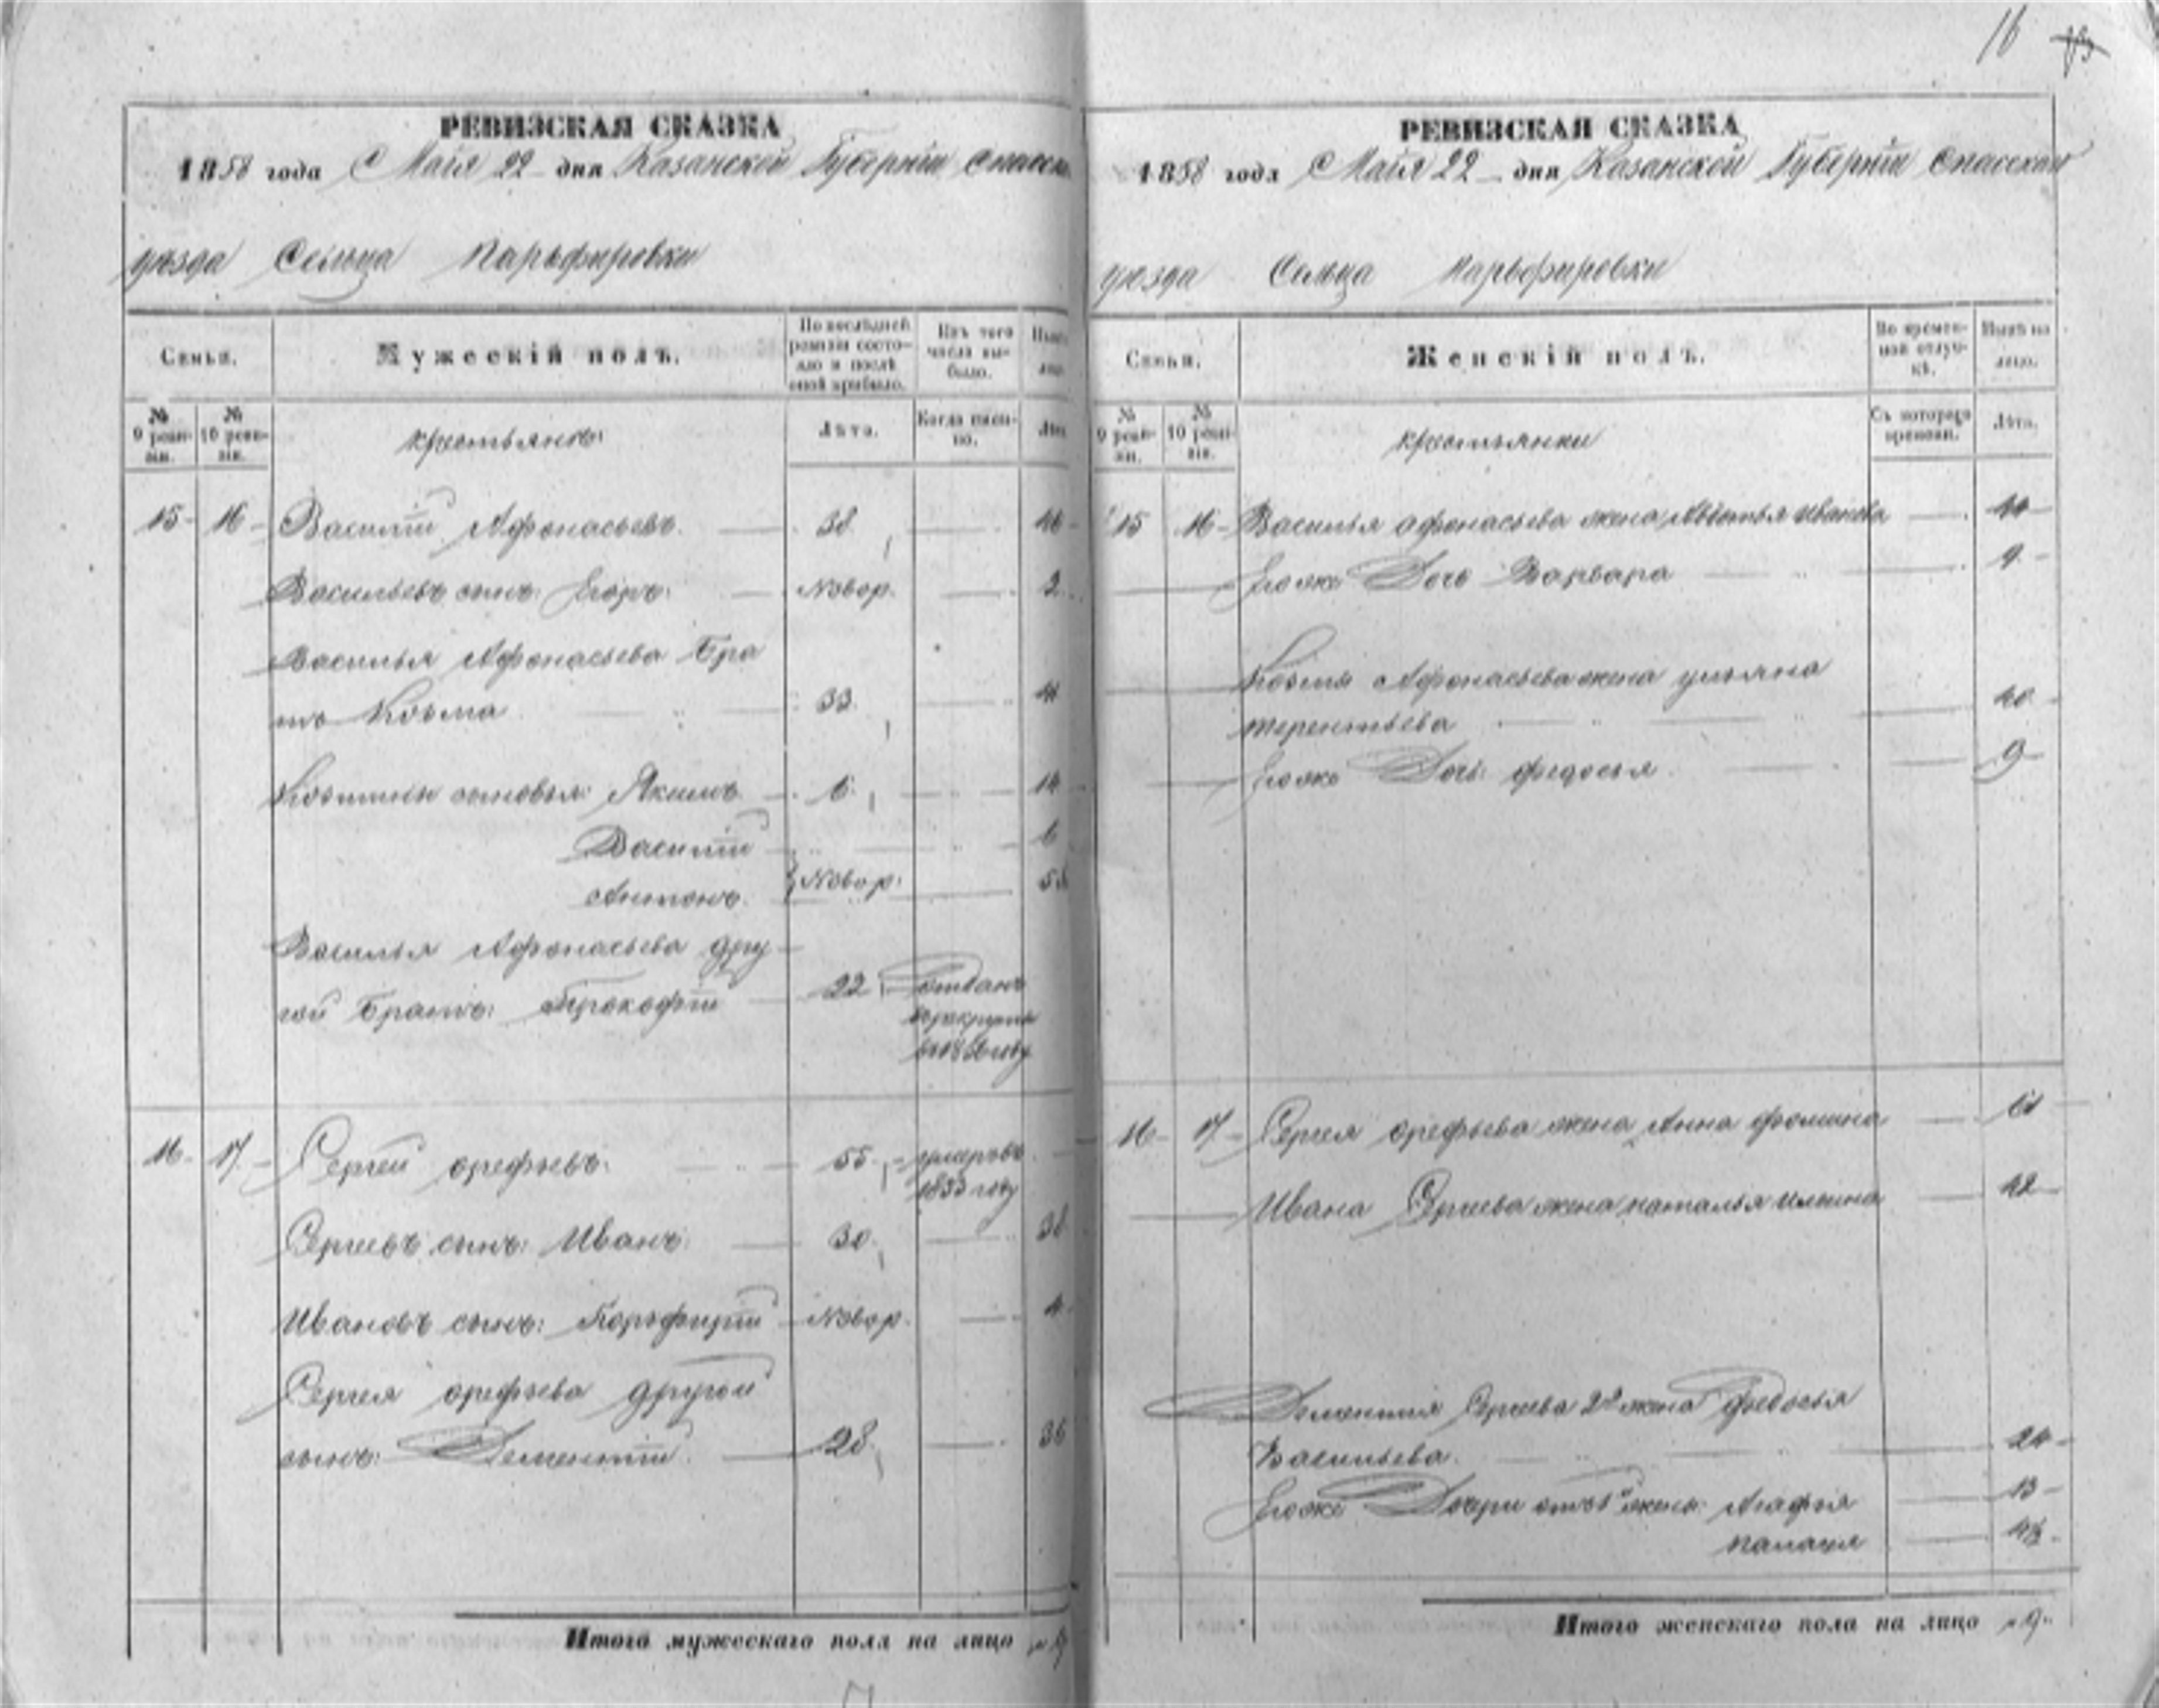 16
РЕВИЗСКАЯ СКАЗКА
1858 года Майя 22 дня Казанской Губернiи
уѣзда Сельца Парьфировки
Семьи.
Мужескiй полъ.
По послѣдней ревизiи состояло и послѣ оной прибыло.
Изъ того числа выбыло.
№ 9 ревизiи.
№ 10 ревизiи.
крестьянъ:
Лѣта.
Когда имянно.
Лѣта.
15 16 Василiй Афонасьевъ. 38. 46
Васильевъ сынъ: Егоръ: Новор. 2
Василья Афонасьева бра
тъ Козьма 33. 41
Козьмины сыновья: Якимъ 6 14
Василiй 6
Антонъ. Новор: 5
Василья Афонасьева дру
гой братъ: Прокофiй 22 отданъ
в рекруты
году
16 17 Сергей орефьевъ: 55 умеръ въ
1855 году
Сергеевъ сынъ: Иванъ: 30. 38
Ивановъ сынъ: Порьфирiй Новор. 4
Сергея орефьева другой
сынъ: Дементiй. 28. 36
Итого мужескаго пола на лицо
РЕВИЗСКАЯ СКАЗКА
1858 года Майя 22 дня Казанской Губернiи Спасскаго
уѣзда Сельца Парьфировки
Семьи.
Женскiй полъ.
Во временной отлучкѣ.
Нынѣ на лицо.
№ 9 ревизiи.
№ 10 ревизiи.
крестьянки
Съ котораго времени.
Лѣта.
15 16 Василья афонасьева жена Авдотья Иванова 40
Егоже Дочь Варвара 9
Козьмы Афонасьева жена ульяна
терентьева 40
Егоже Дочь: федосья 9
16 17 Сергея орефьева жена Анна фомина 61
Ивана Сергеева жена наталья ильина 42
Дементия Сергеева 2я жена Федосья
Васильева. 24
Егоже Дочери отъ 1й жены: Агафья 13
палагея
Итого женскаго пола на лицо 9